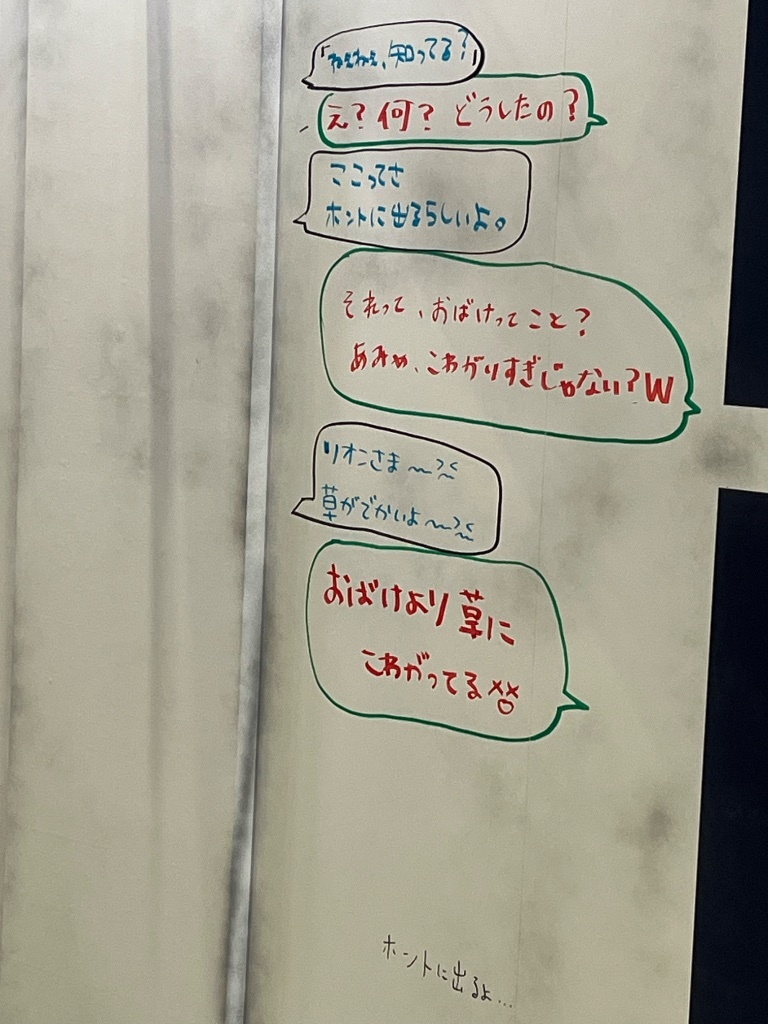 「ねぇねぇ、知ってる?」
え?何? どうしたの?
ここってさ
ホントに出るらしいよ。
それって、おばけってこと?
あみゃ、こわがりすぎじゃない?W
リオンさま〜
草がでかいよ〜
おばけより草に
こわがってる
ホントに出るよ...